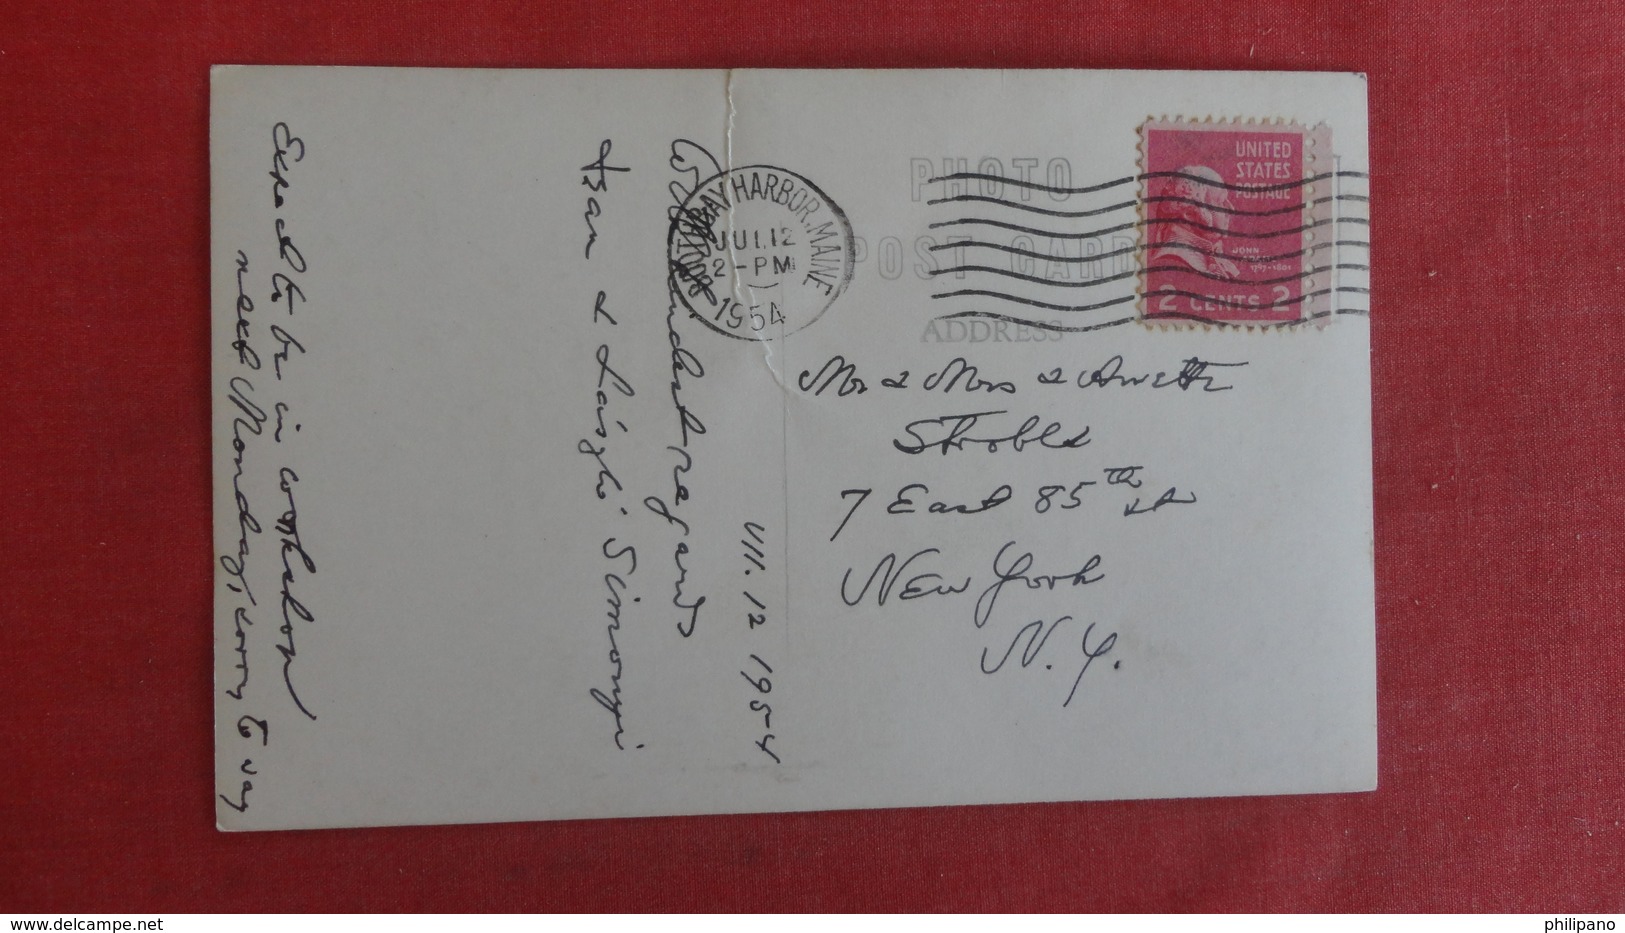 VII. 12 1954
kindest regards
& László Simonyi
Expect to be in
next Monday, sorry to say
BOOTHBAY HARBOR, MAINE
JUL 12
2-PM
1954
PHOTO
POST CARD
ADDRESS
UNITED
STATES
POSTAGE
JOHN
ADAMS
1797-1801
2 CENTS 2
Mr & Mrs &
7 East 85th St
New York
N.Y.
http://www.delcampe.net
philipano